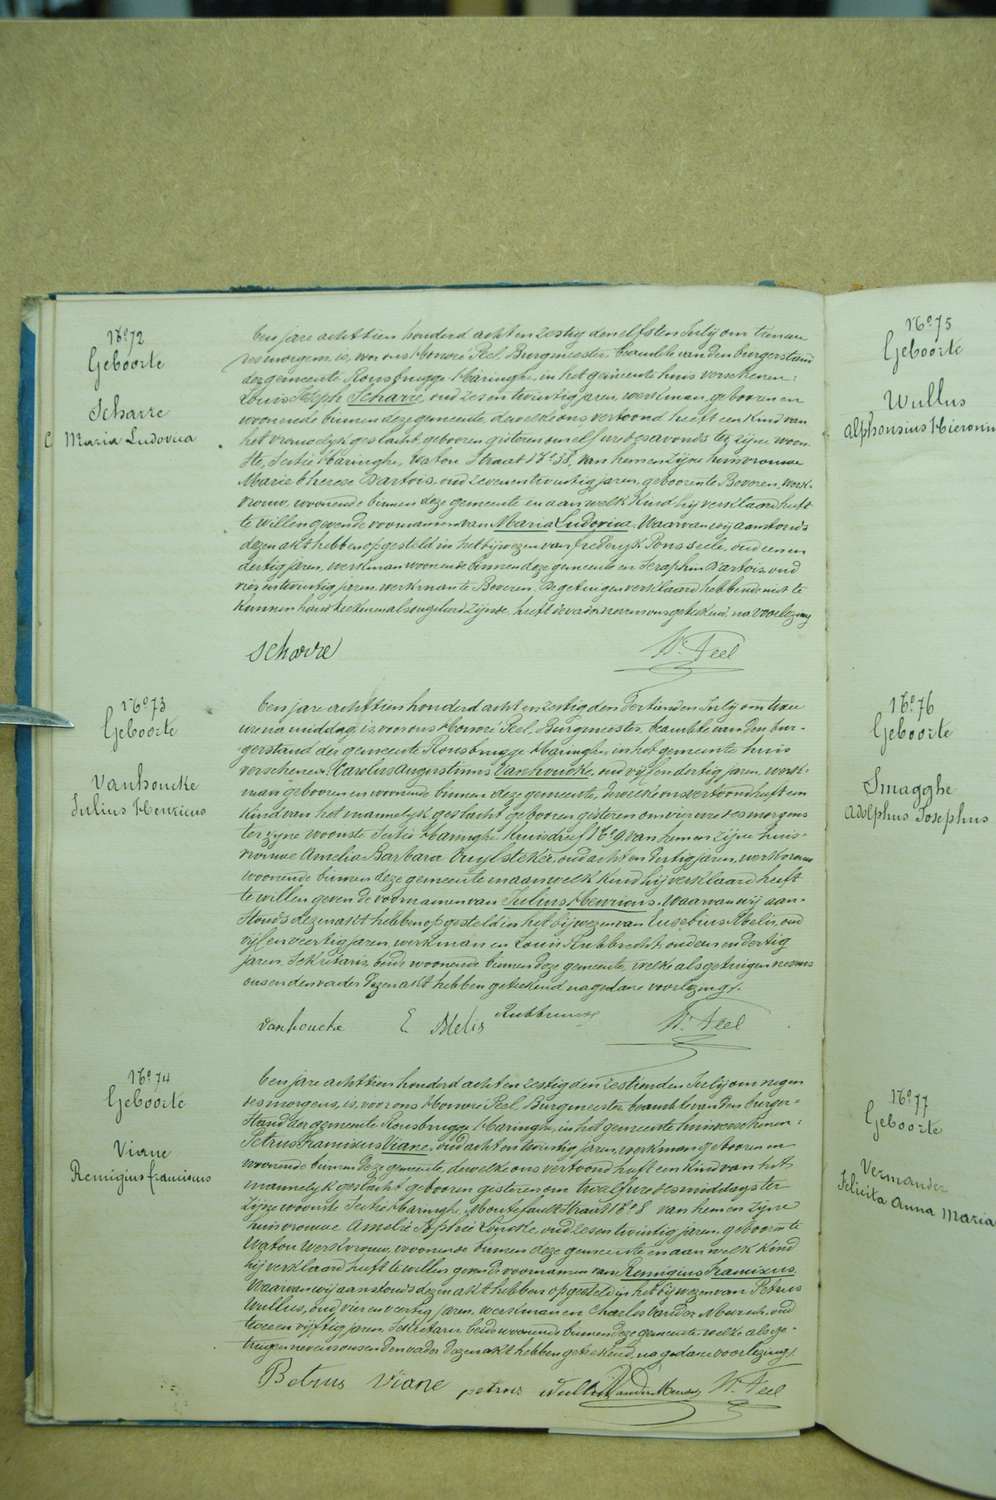 N° 72
Geboorte
Scharre
Maria Ludovica
Den jare achttien honderd acht en zestig den elfsten July om tien ure
des morgens, is, voor ons Honoré Peel, Burgmeester, beambte van den burgerstand
der gemeente Rousbrugge Haringhe, in het gemeente huis verschenen:
Louis Joseph Scharre, oud zes en twintig jaren, werkman, geboren en
woonende binnen deze gemeente, dewelke ons vertoond heeft een kind van
het vrouwelyk geslacht, geboren gisteren om elf ure des avonds te zyne woon-
ste, Sectie Haringhe, Watou Straat N° 38, van hem en zyne huisvrouwe
Marie Therese Dartois, oud zeven en twintig jaren, geboren te Beveren, werk-
vrouw, woonende binnen deze gemeente en aan welk kind hy verklaard heeft
te willen geven de voornamen van Maria Ludovica. Waarvan wy aanstonds
dezen akt hebben opgesteld in het bywezen van frederyk Ponsseele, oud een en
dertig jaren, werkman woonende binnen deze gemeente en Seraphin Dartois, oud
vier en twintig jaren, werkman te Beveren. De getuigen verklaard hebbende niet te
kunnen handteekenen als ongeleerd zynde, heeft de vader nevens ons geteekend, na voorlezing
scharre H. Peel
N° 73
Geboorte
Vanhoucke
Julius Henricus
Den jare achttien honderd acht en zestig den dertienden July om twee
ure na middag, is, voor ons Honoré Peel, Burgmeester, beambte van den bur-
gerstand der gemeente Rousbrugge Haringhe, in het gemeente huis
verschenen: Carolus Augustinus Vanhoucke, oud vyf en dertig jaren, werk-
man geboren en woonende binnen deze gemeente, dewelke ons vertoond heeft een
kind van het mannelyk geslacht geboren gisteren om vyf ure des morgens
ter zyne woonste Sectie Haringhe Kruisdreef N° 9, van hem en zyne huis-
vrouwe Amelia Barbara Vuylsteker, oud acht en dertig jaren, werkvrouw
woonende binnen deze gemeente en aan welk kind hy verklaard heeft
te willen geven de voornamen van Julius Henricus. Waarvan wy aan-
stonds dezen akt hebben opgesteld in het bywezen van Eusebius Melis, oud
vyf en veertig jaren, werkman en Louis Rubbrecht, oud zes en dertig
jaren, Sekretaris, beide woonende binnen deze gemeente, welke als getuigen nevens
ons en den vader dezen akt hebben geteekend na gedane voorlezing.
vanhoucke E Melis H. Peel
N° 74
Geboorte
Viane
Remigius francisus
Den jare achttien honderd acht en zestig den zestienden July om negen
des morgens, is, voor ons Honoré Peel, Burgmeester, beambte van den burger-
stand der gemeente Rousbrugge Haringhe, in het gemeente huis verschenen:
Petrus Franciscus Viane, oud acht en twintig jaren, werkman geboren en
woonende binnen deze gemeente, dewelke ons vertoond heeft een kind van het
mannelyk geslacht geboren gisteren om twaalf ure des middags ter
zyne woonste Sectie Haringhe, straat N° 8 van hem en zyne
huisvrouwe Amelie Sophie, oud zes en twintig jaren, geboren te
Watou werkvrouw, woonende binnen deze gemeente en aan welk kind
hy verklaard heeft te willen geven de voornamen van Remigius Franciscus.
Waarvan wy aanstonds dezen akt hebben opgesteld in het bywezen van Petrus
Wullus, oud vier en veertig jaren, werkman en Charles Vander Meersch, oud
twee en vyftig jaren, Sekretaris, beide woonende binnen deze gemeente, welke als ge-
tuigen nevens ons en den vader dezen akt hebben geteekend, na gedane voorlezing.
Petrus Viane petrus Wullus H. Peel
N° 75
Geboorte
Wullus
Alphonsius Hieronim
N° 76
Geboorte
Smagghe
Adolphus Josephus
N° 77
Geboorte
Vermander
Felicita Anna Maria